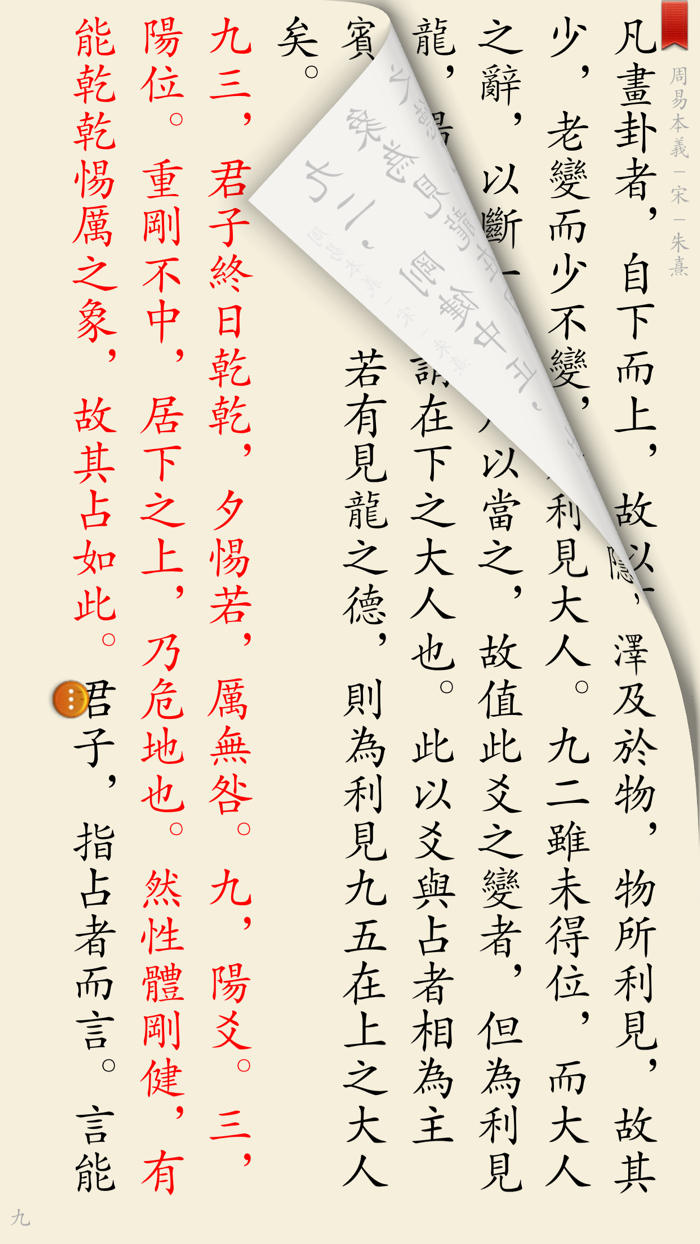 周易本義－宋－朱熹
凡畫卦者，自下而上，故以隱，澤及於物，物所利見，故其
少，老變而少不變，利見大人。九二雖未得位，而大人
之辭，以斷一以當之，故值此爻之變者，但為利見
龍，在下之大人也。此以爻與占者相為主
賓若有見龍之德，則為利見九五在上之大人
矣。
九三，君子終日乾乾，夕惕若，厲無咎。九，陽爻。三，
陽位。重剛不中，居下之上，乃危地也。然性體剛健，有
能乾乾惕厲之象，故其占如此。君子，指占者而言。言能
九